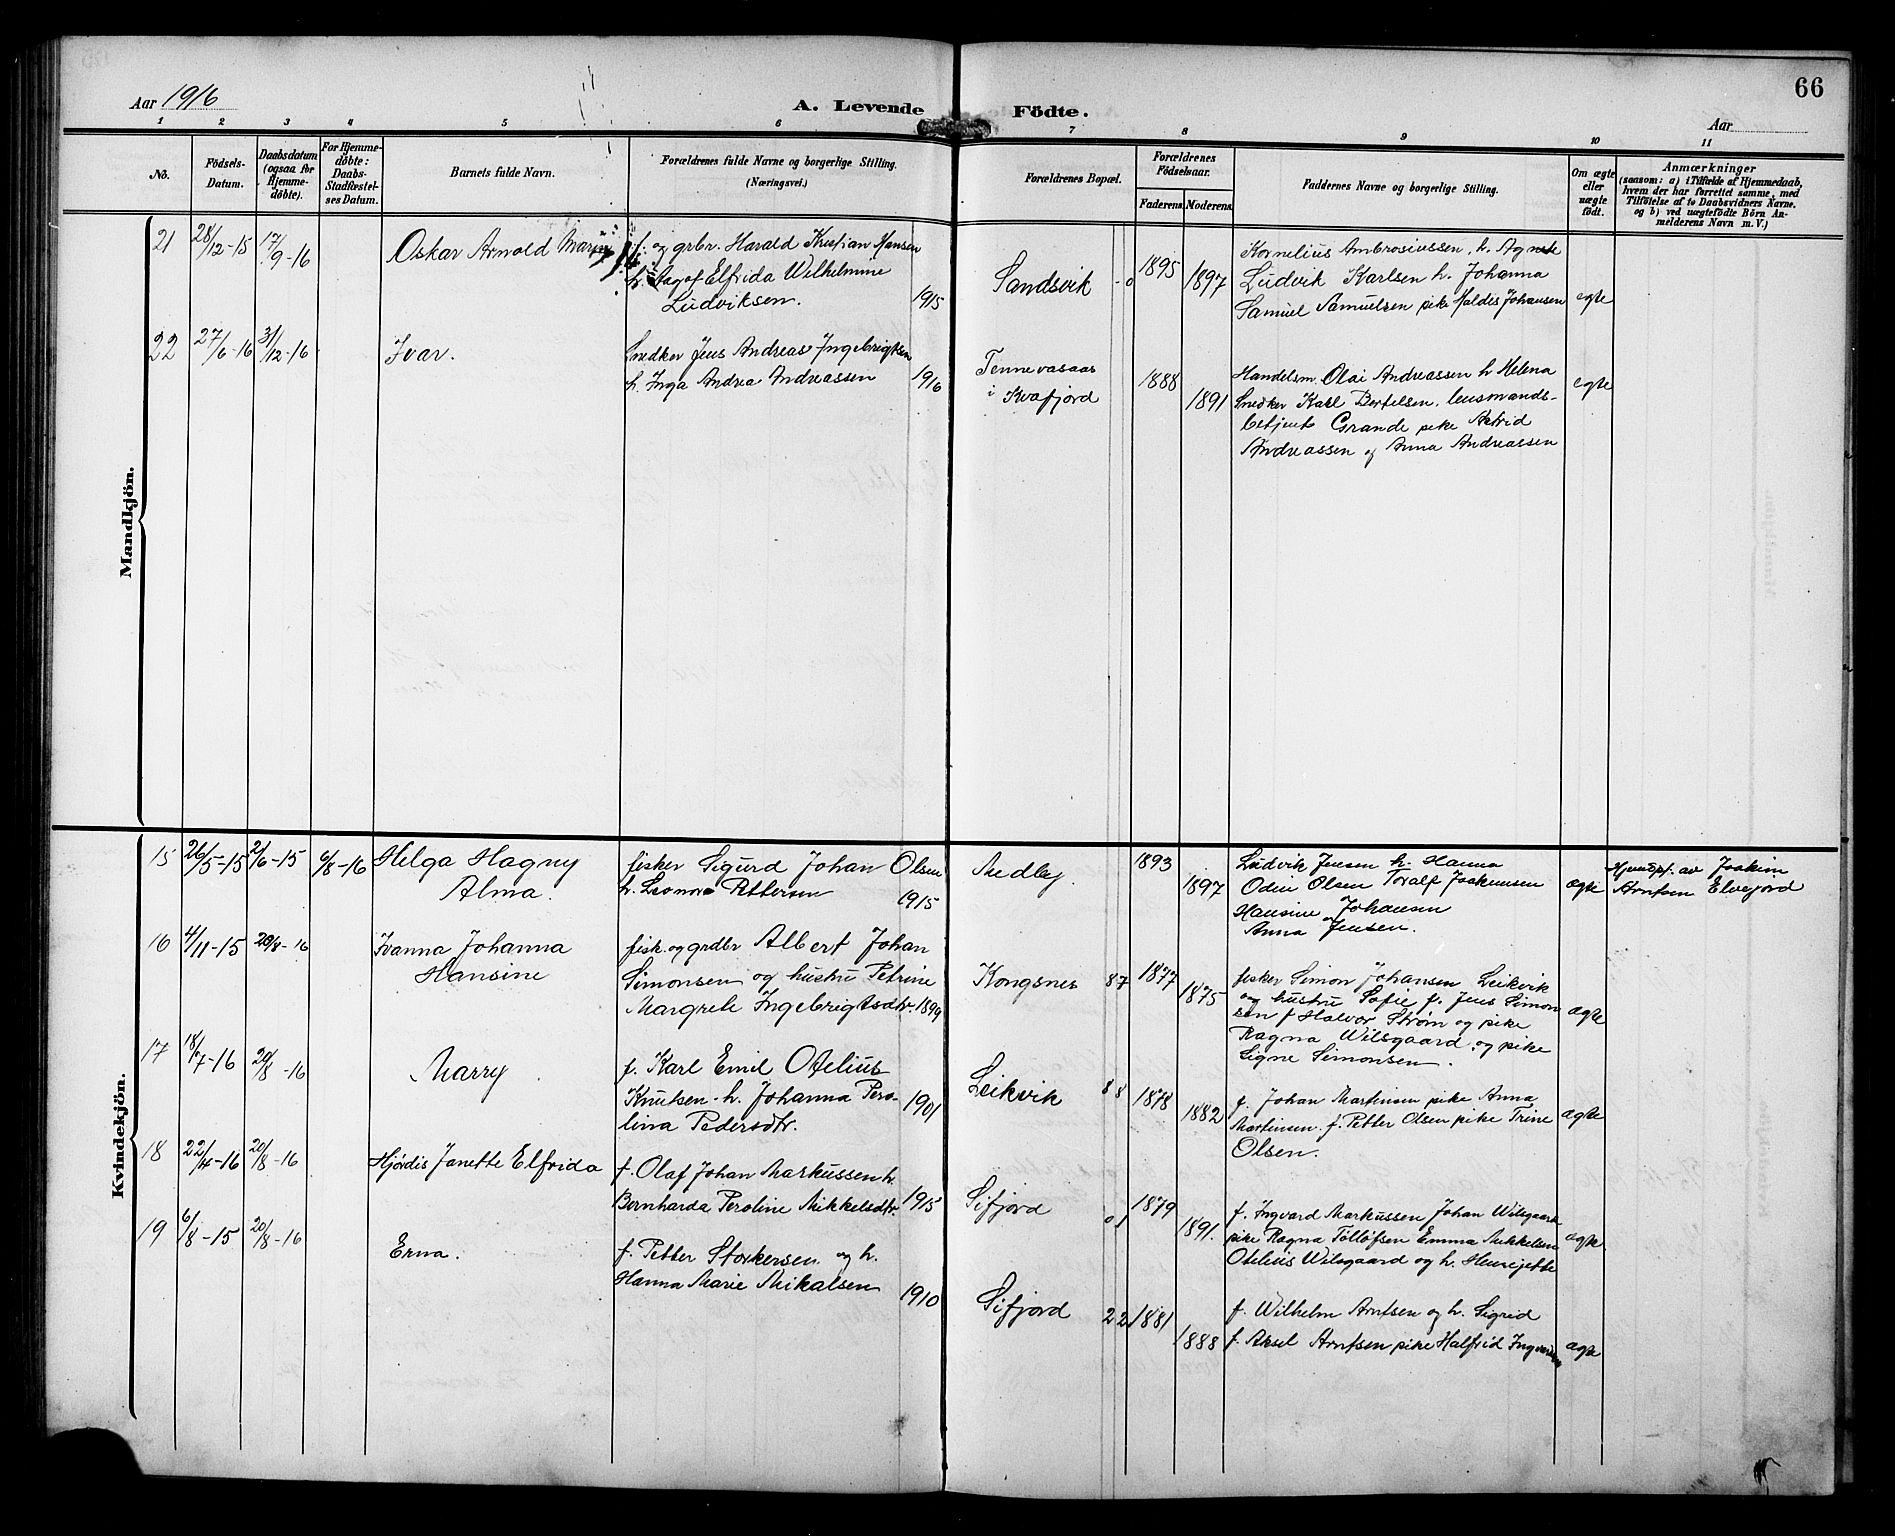 66
Aar 1916
A. Levende Födte.
Aar
1 2 3 4 5 6 7 8 9 10 11
No.
Födsels-
Datum.
Daabsdatum
(ogsaa for
Hjemme-
döbte).
For Hjemme-
döbte:
Daabs-
Stadfæstel-
ses Datum.
Barnets fulde Navn.
Forældrenes fulde Navne og borgerlige Stilling.
(Næringsvei.)
Forældrenes Bopæl.
Forældrenes
Födselsaar.
Faderens. Moderens.
Faddernes Navne og borgerlige Stilling.
Om ægte
eller
uægte
födt.
Anmærkninger
(saasom: a) i Tilfælde af Hjemmedaab,
hvem der har forrettet samme, med
Tilföielse af to Daabsvidners Navne.
og b) ved uægtefödte Börn An-
melderens Navn m. V.)
Mandkjön.
21 28/12-15 17/9-16 Oskar Arnold
f. og grbr. Harald Kristian Hansen
h. Elfrida Wilhelmine
Ludviksen. 1915
Sandsvik 1895 1897
Kornelius Ambrosiussen, h. Agnete
Ludvik Karlsen h. Johanna
Samuel Samuelsen pike Haldis Johansen
egte
22 27/6-16 31/12-16 Ivar.
Snedker Jens Andreas Ingebrigtsen
h. Inga Andrea Andreassen 1916
Tennevasaas
i Kvæfjord
1888 1891
Handelsm. Olai Andreassen h Helena
Snedker Karl Bertelsen. lensmands-
betjent Grande pike Astrid
Andreassen og Anna Andreassen
egte
Kvindekjön.
15 26/5-15 2/6-15 6/8-16 Helga Hagny
Alma.
fisker Sigurd Johan Olsen
h. Leonora Pettersen 1915
Medby. 1893 1897
Ludvik Jensen h. Hanna
Odin Olsen Toralf Joakimsen
Hansine Johansen
Anna Jensen.
ægte
Hjemdpt. av Joakim
Arntsen Elvejord
16 4/11-15 20/8-16 Ivanna Johanna
Hansine
fisk. og grdbr Albert Johan
Simonsen og hustru Petrine
Margrete Ingebrigtsdtr. 1899
Kongsnes 87 1877 1875
fisker Simon Johansen Leikvik
og hustru Sofie f. Jens Simon
sen f Halvor Strøm og pike
Ragna Wilsgaard og pike
Signe Simonsen.
ægte
17 18/7-16 20/8-16 Marry.
f. Karl Emil Otelius
Knutsen-h. Johanna Pero-
lina Pedersdtr. 1901
Leikvik 88 1878 1882
f. Johan Martinsen pike Anna
Martinsen. f. Petter Olsen pike Trine
Olsen.
ægte
18 22/4-16 20/8-16 Hjørdis Janette Elfrida
f. Olaf Johan Markussen h.
Bernharda Peroline Mikkelsdtr. 1915
Sifjord 01 1879 1891.
f. Ingvard Markussen Johan Wilsgaard
pike Ragna Tollefsen Emma Mikkelsen
Otelius Wilsgaard og h. Henrijette
ægte.
19 6/8-15 20/8-16 Erna.
f. Petter Storkersen og h.
Hanna Marie Mikalsen 1910
Sifjord 22 1881 1888
f. Wilhelm Arntsen og h. Sigrid
f. Aksel Arntsen pike Halfrid
ægte